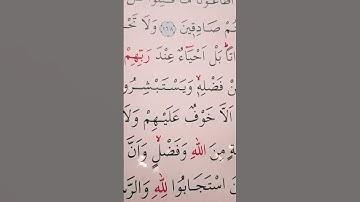 صَادِقِينَ ﴿١٦٨﴾ وَلَا
بَلْ اَحْيَٓاءٌ عِنْدَ رَبِّهِمْ
فَضْلِهٖ وَيَسْتَبْشِرُو
اَلَّا خَوْفٌ عَلَيْهِمْ وَلَا
مِنَ اللّٰهِ وَفَضْلٍ وَاَنَّ
اسْتَجَابُوا لِلّٰهِ وَالرَّ